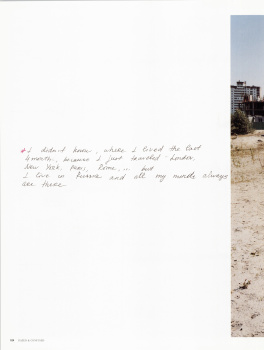 * I didn't know, where I lived the last
4 month, because I just traveled - London,
New York, Paris, Rome, ... but
I live in Russia and all my minds always
are there